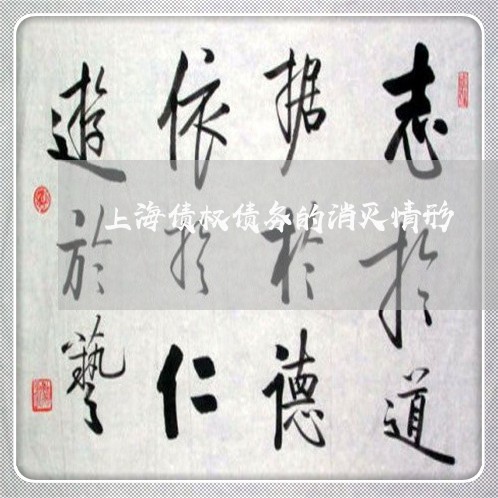 志於道
据於德
依於仁
遊於藝
上海债权债务的消灭情形